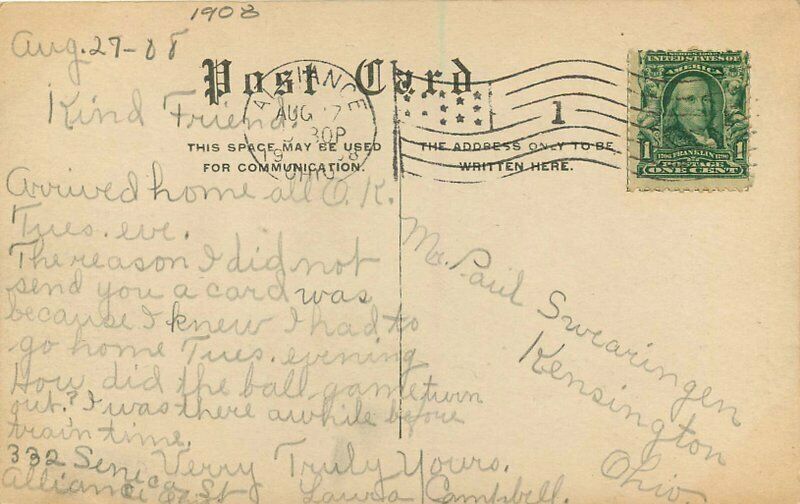 1908
Aug. 27-08
Post Card
Kind Friend.
ALLIANCE
AUG 27
30P
1908
OHIO
1
SERIES 1902
UNITED STATES OF
AMERICA
1706 FRANKLIN 1790
1 POSTAGE 1
ONE CENT
THIS SPACE MAY BE USED
FOR COMMUNICATION.
THE ADDRESS ONLY TO BE
WRITTEN HERE.
Arrived home all O.K.
Tues. eve.
The reason I did not
send you a card was
because I knew I had to
go home Tues. evening
How did the ball game turn
out? I was there awhile before
train time.
Verry Truly Yours.
Laura Campbell.
332 Seneca
Alliance O. St
Mr. Paul Swearingen
Kensington
Ohio